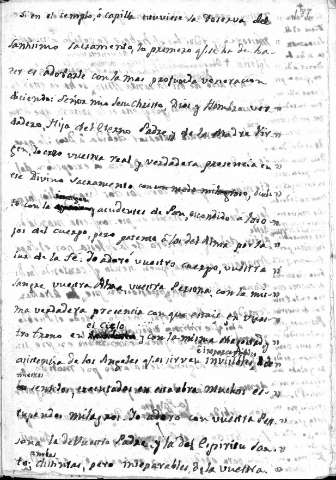 137
Si en el templo, ò capilla estuviere la reserva del
santissimo sacramento, lo primero q̃ se ha de ha-
cer es adorarle con la mas profunda veneracion
diciendo: Señor mio Jesu Christo, Dios y Hombre ver-
dadero, Hijo del Eterno Padre y de la Madre Vir-
gen, Yo creo vuestra real y verdadera presencia en
ese Divino Sacramento con un modo milagroso,
to con la accidentes de Pan, escondido a los o-
jos del cuerpo, pero patente à los del Alma por la
luz de la Fe. Yo adoro vuestro cuerpo, vuestra
sangre vuestra Alma vuestra Persona con la mis-
ma verdadera presencia con que estais en vues-
el cielo
tro trono en y con la misma Magestad, y
asistencia de los Angeles q̃ os sirven invisibles
sentidos, executados en esta obra muchos es-
tupendos milagros. Yo adoro con vuestra Per-
sona la de Vuestro Padre, y la del Espiritu San-
ambas
to, distintas, pero inseparables, de la vuestra.